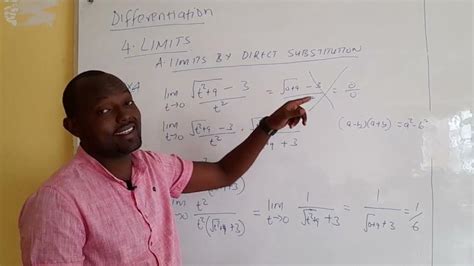 Differentiation
4. LIMITS
A. LIMITS BY DIRECT SUBSTITUTION
lim t→0 (√(t²+9) − 3)/t² = (√(0+9) − 3) = 0/0
lim t→0 (√(t²+9) − 3)/t² · √(t²+9) + 3
(a-b)(a+b) = a²-b²
t²/(t²(√(t²+9)+3)) = lim t→0 1/(√(t²+9) + 3) = 1/(√(0+9) + 3) = 1/6